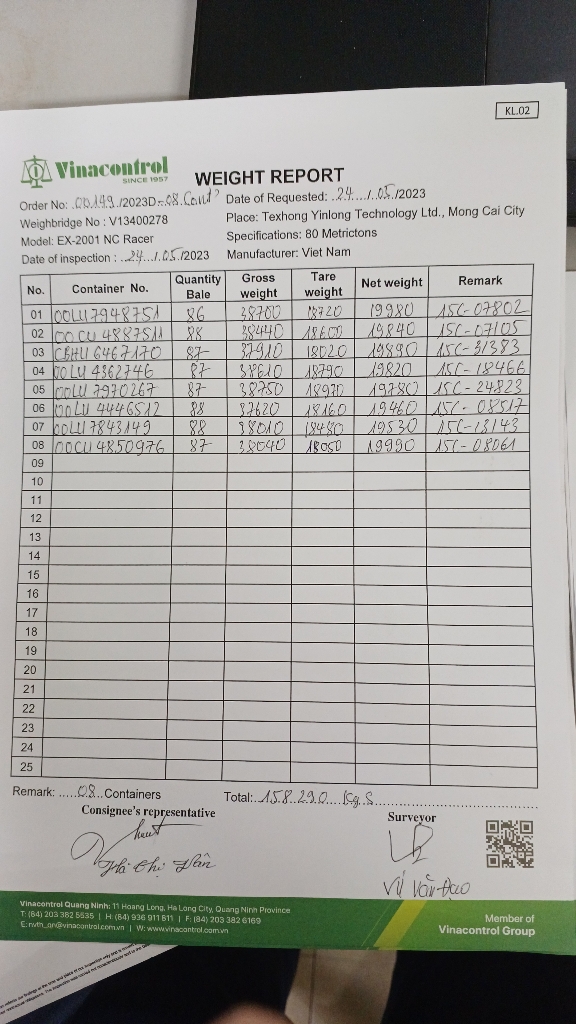 KL.02
Vinacontrol
SINCE 1957
WEIGHT REPORT
Order No: 00149/2023D-08 Cont' Date of Requested: 24/05/2023
Weighbridge No : V13400278 Place: Texhong Yinlong Technology Ltd., Mong Cai City
Model: EX-2001 NC Racer Specifications: 80 Metrictons
Date of inspection : 24/05/2023 Manufacturer: Viet Nam
No. Container No. Quantity Bale Gross weight Tare weight Net weight Remark
01 OOLU7948751 86 38700 18720 19980 15C-07802
02 OOCU 4887511 88 38440 18600 19840 15C-07105
03 CBHU 6467170 87 37910 18020 19890 15C-31383
04 OOLU 4362746 87 38610 18790 19820 15C-18466
05 OOLU 7970267 87 38750 18970 19780 15C-24823
06 OOLU 4446512 88 37620 18160 19460 15C-08517
07 OOLU7843149 88 38010 18480 19530 15C-13143
08 OOCU 4850976 87 38040 18050 19990 15C-08061
09
10
11
12
13
14
15
16
17
18
19
20
21
22
23
24
25
Remark: ......08...Containers Total: 158 290 KgS
Consignee's representative Surveyor
Vũ Văn Đạo
Vinacontrol Quang Ninh: 11 Hoang Long, Ha Long City, Quang Ninh Province
T: (84) 203 382 5535 | H: (84) 936 911 811 | F: (84) 203 382 6169
E: nvth_qn@vinacontrol.com.vn | W: www.vinacontrol.com.vn
Member of
Vinacontrol Group